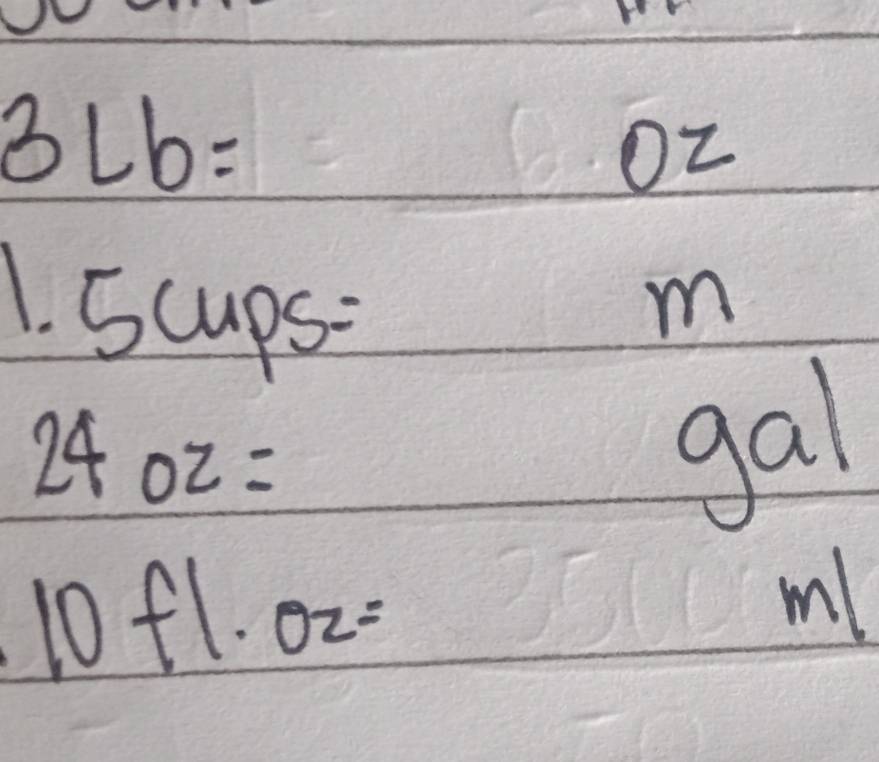 3 Lb= oz
1.5 cups= m
24 oz= gal
10 fl. oz= ml